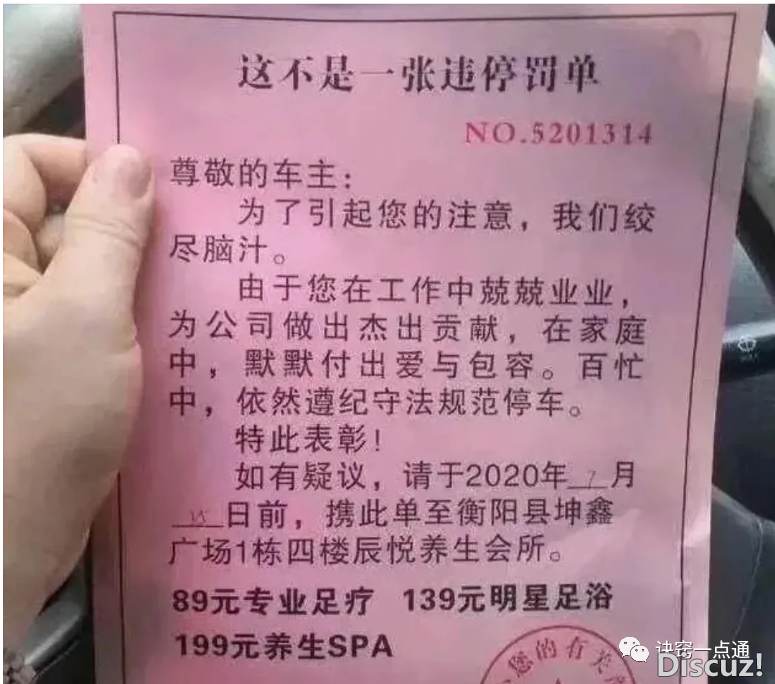 这不是一张违停罚单
NO.5201314
尊敬的车主：
为了引起您的注意，我们绞
尽脑汁。
由于您在工作中兢兢业业，
为公司做出杰出贡献，在家庭
中，默默付出爱与包容。百忙
中，依然遵纪守法规范停车。
特此表彰！
如有疑议，请于2020年 7 月
日前，携此单至衡阳县坤鑫
广场1栋四楼辰悦养生会所。
89元专业足疗 139元明星足浴
199元养生SPA
您的有关
诀窍一点通
Discuz!